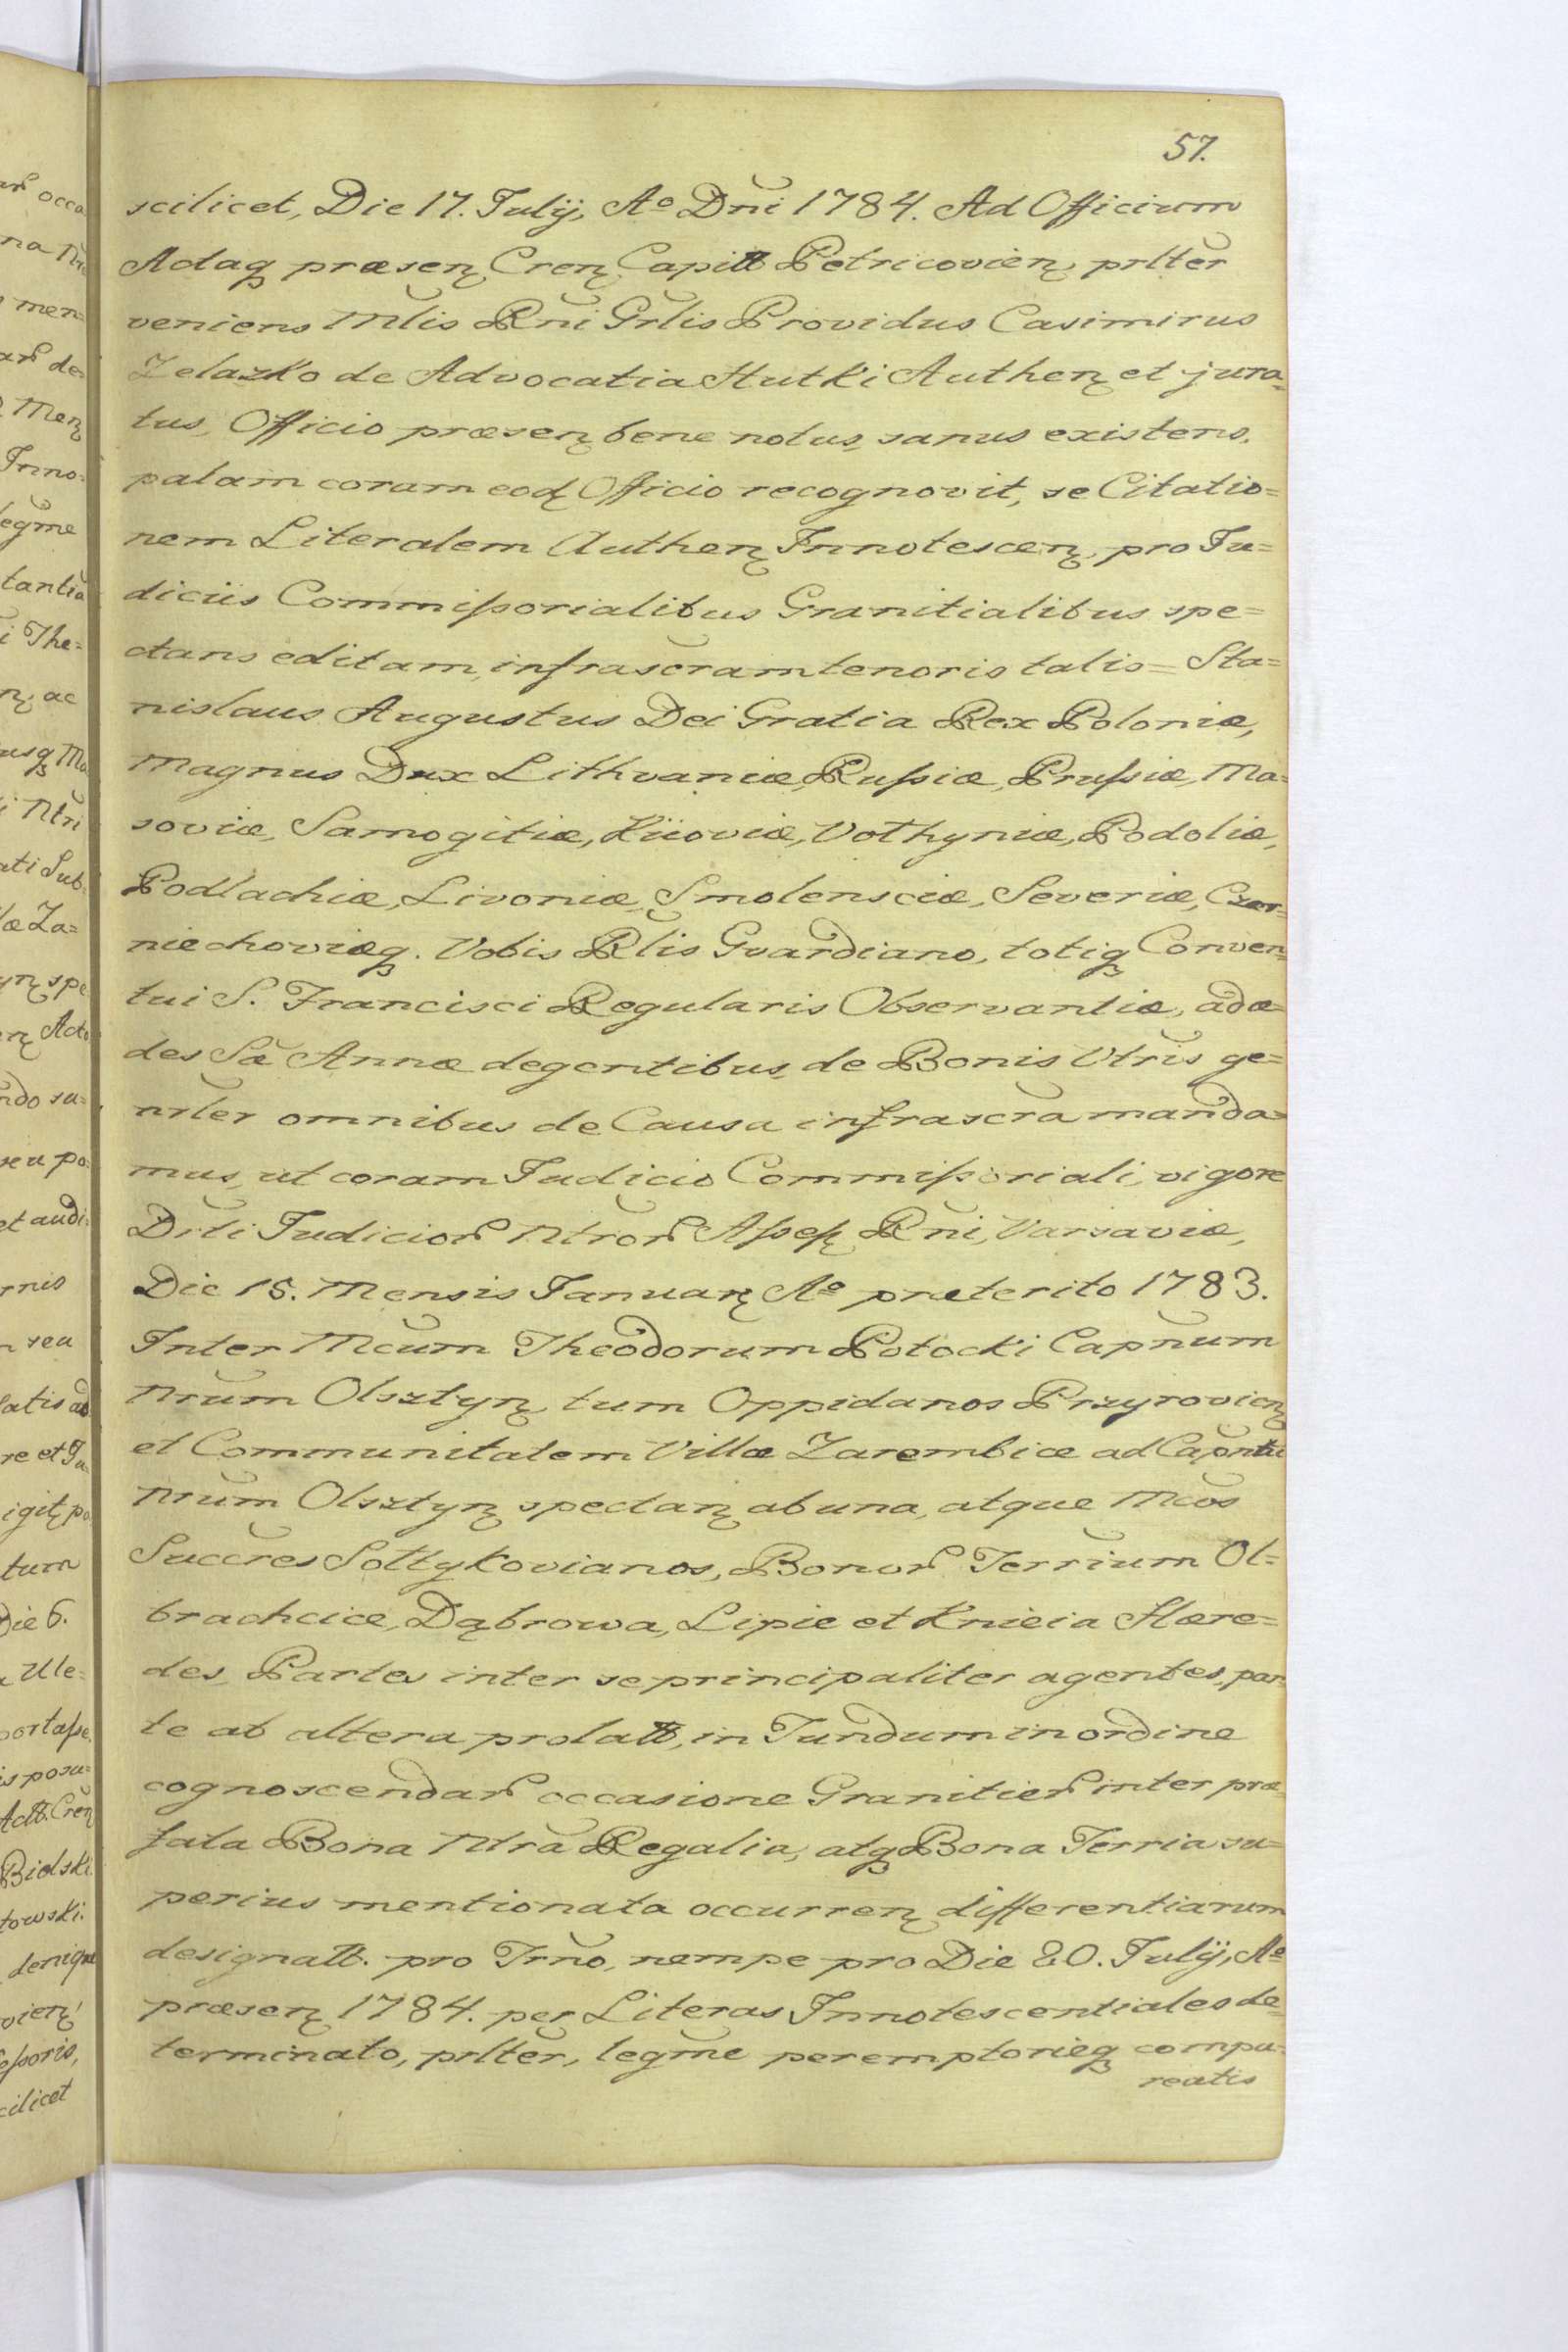 57.
scilicet, Die 17. Julij, Aº Dñi 1784. Ad Officium
Actaq₃ præsenɀ Crenɀ Capitt Petricovienɀ, prltẽr
veniens Mlis Rñi Grlis Providus Casimirus
Zelazko de Advocatia Hutki Authenɀ et jura=
tus, Officio præsenɀ bene notus, sanus existens,
palam coram eodɀ Officio recognovit, se Citatio=
nem Literalem Authenɀ Innotescenɀ, pro Ju=
diciis Commißorialibus Granitialibus spe=
ctans editam, infrascram tenoris talis = Sta=
nislaus Augustus Dei Gratia Rex Poloniæ,
Magnus Dux Lithvaniæ, Rußiæ, Prußiæ, Ma=
soviæ, Samogitiæ, Kijoviæ, Volhyniæ, Podoliæ,
Podlachiæ, Livoniæ, Smolensciæ, Severiæ, Czer=
niechoviæq₃. Vobis Rlis Gvardiano, totiq₃ Conven=
tui S. Francisci Regularis Observantiæ, ad æ=
des Sæ Annæ degentibus, de Bonis Vtris ge=
nrler omnibus de Causa infrascra manda=
mus, ut coram Judicio Commißoriali, vigore
Drti Judicioꝝ Ntroꝝ Aßeßɀ Rñi, Varsaviæ,
Die 15. Mensis Januarɀ Aº præterito 1783.
Inter Mcum Theodorum Potocki Capñum
Nrum Olsztynɀ tum Oppidanos Przyrovienɀ
et Communitatem Villæ Zarembice ad Capntũ
Nrum Olsztynɀ spectanɀ ab una, atque Mcos
Succres Soltykovianos, Bonoꝝ Terrium Ol=
brachcice, Dąbrowa, Lipie et Knieia Hære=
des, Partes inter se principaliter agentes, par=
te ab altera prolatt, in Fundum in ordine
cognoscendaꝝ occasione Granitieꝝ inter præ
fata Bona Ntra Regalia, atq₃ Bona Terria su=
perius mentionata occurrenɀ differentiarum
designatt. pro Trño, nempe pro Die 20. Julij, Aº
præsenɀ 1784. per Literas Innotescentiales de=
terminato, prltẽr, legm̃e peremptorieq₃ compa=
reatis